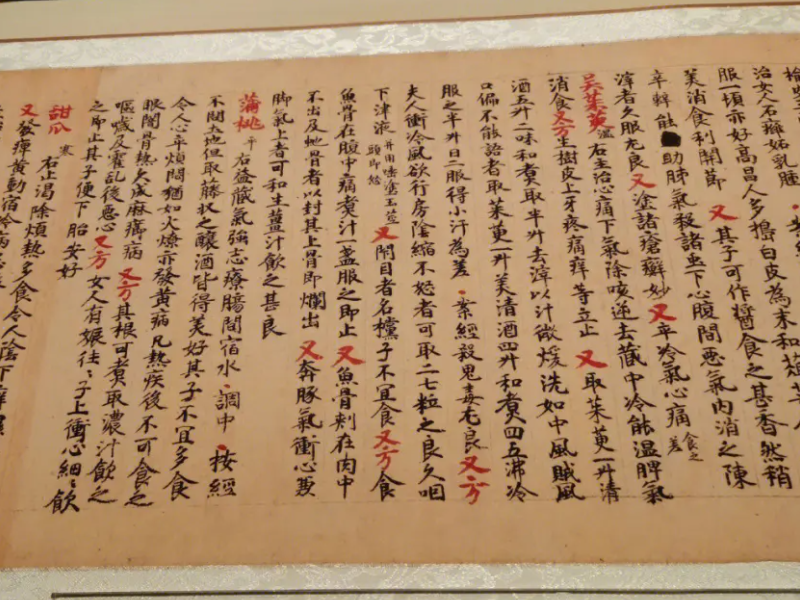 治女人石癰妬乳腫
服一頃亦好高昌人多擣白皮為末和菹菜人
美消食利關節又其子可作醬食之甚香然稍
辛辣能助肺氣殺諸虫下心腹間惡氣內消之陳
滓者久服尤良又塗諸瘡癬妙又卒冷氣心痛食之差
吳茱萸溫右主治心痛下氣除咳逆去藏中冷能溫脾氣
消食又方生樹皮上牙疼痛痒等立止又取茱萸一升清
酒五升二味和煮取半升去滓以汁微煖洗如中風賊風
口偏不能語者取茱萸一升美清酒四升和煮四五沸冷
服之半升日二服得小汗為差案經殺鬼毒尤良又方
夫人衝冷風欲行房陰縮不怒者可取二七粒之良久咽
下津液并用唾塗玉莖頭即怒又閉目者名欓子不宜食又方食
魚骨在腹中痛煮汁一盞服之即止又魚骨刺在肉中
不出及虵骨者以封其上骨即爛出又奔豚氣衝心兼
脚氣上者可和生薑汁飲之甚良
蒲桃平右益藏氣強志療腸間宿水調中按經
不問土地但取藤收之釀酒皆得美好其子不宜多食
令人心卒煩悶猶如火燎亦發黃病凡熱疾後不可食之
眼闇骨熱久成麻癤病又方其根可煮取濃汁飲之
嘔噦及霍亂後惡心又方女人有娠往々子上衝心細々飲
之即止其子便下胎安好
甜瓜寒右止渴除煩熱多食令人陰下癢濕
又發癉黃動宿冷病